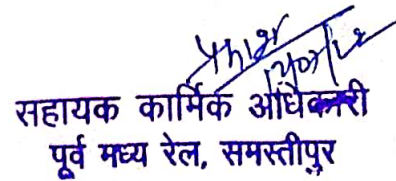 सहायक कार्मिक अधिकारी
पूर्व मध्य रेल, समस्तीपुर